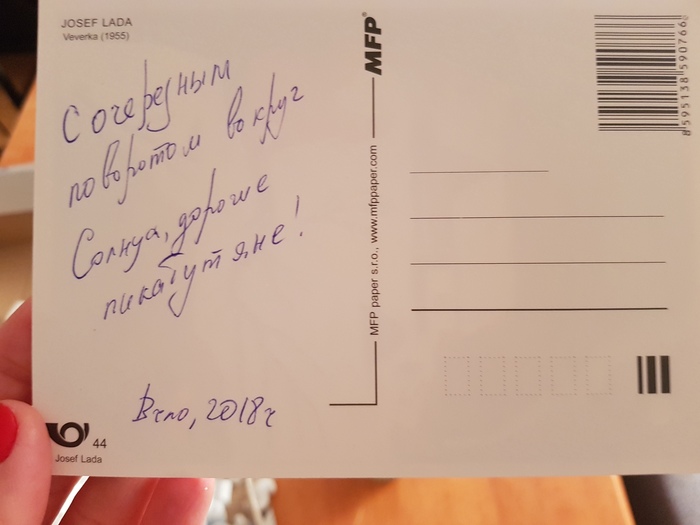 JOSEF LADA
Veverka (1955)
С очередным
поворотом вокруг
Солнца, дорогие
пикабутяне!
Брно, 2018г
44
Josef Lada
MFP paper s.r.o., www.mfppaper.com
MFP®
8 595138 590766